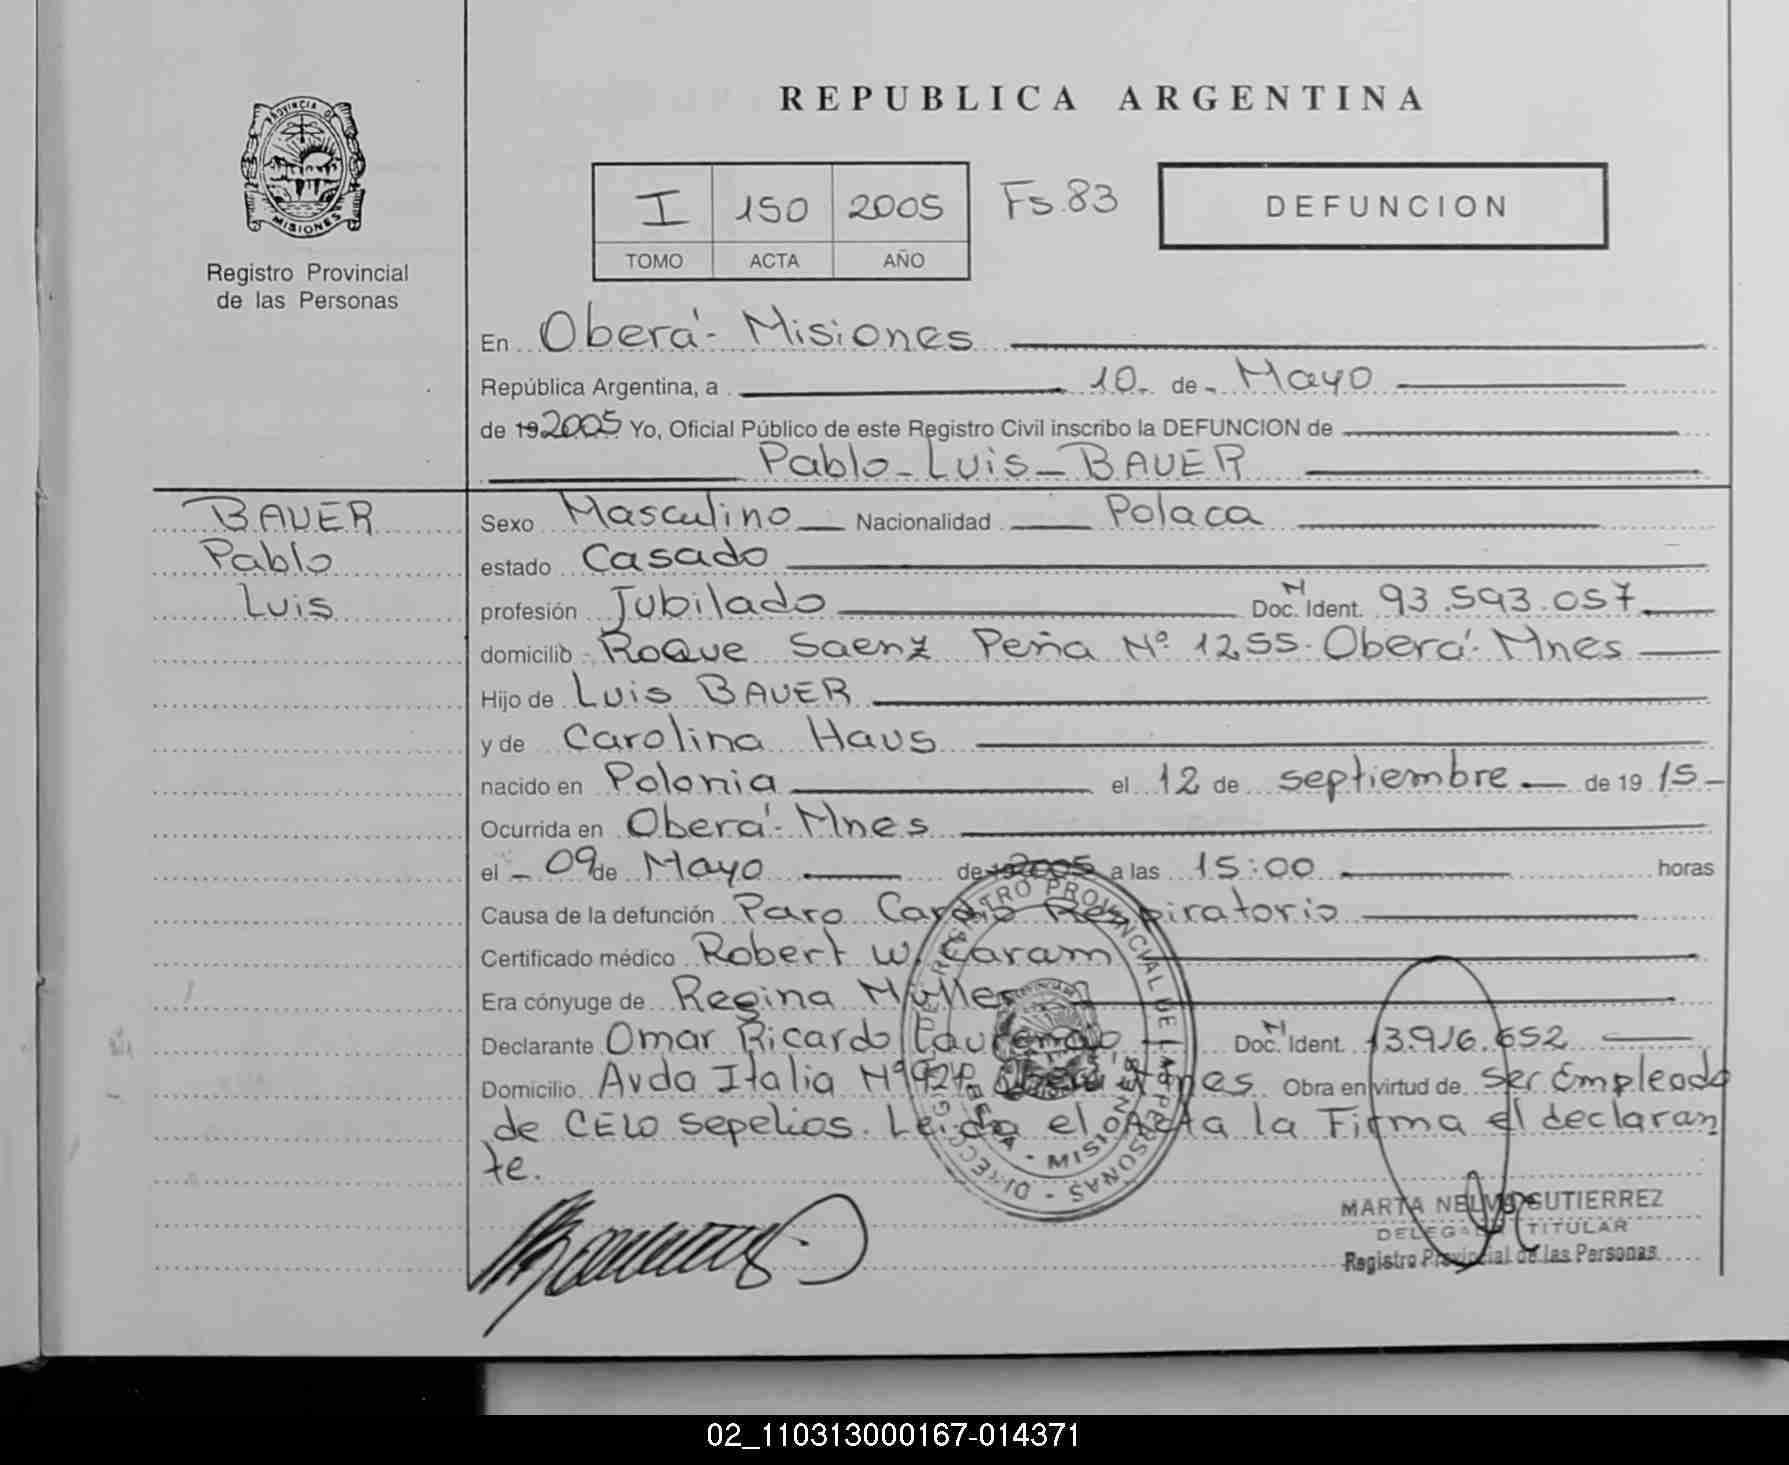 PROVINCIA DE
MISIONES
Registro Provincial
de las Personas
REPUBLICA ARGENTINA
I 150 2005 Fs.83
TOMO ACTA AÑO
DEFUNCION
En Oberá - Misiones
República Argentina, a 10 de Mayo
de 19 2005 Yo, Oficial Público de este Registro Civil inscribo la DEFUNCION de
Pablo - Luis - BAUER
BAUER
Pablo
Luis
Sexo Masculino Nacionalidad Polaca
estado Casado
profesión Jubilado Doc. N Ident. 93.593.057
domicilio Roque Saenz Peña Nº 1255. Oberá - Mnes
Hijo de Luis BAUER
y de Carolina Haus
nacido en Polonia el 12 de septiembre de 19 15
Ocurrida en Oberá - Mnes
el 09 de Mayo de 19 2005 a las 15:00 horas
Causa de la defunción Paro Cardio Respiratorio
Certificado médico Robert W. Caram
Era cónyuge de Regina Muller
Declarante Omar Ricardo Doc. N Ident. 13.916.652
Domicilio Avda Italia Nº Mnes Obra en virtud de ser Empleado
de CELO sepelios. Leida el Acta la Firma el declaran
te.
DIRECCION DE REGISTRO PROVINCIAL DE LAS PERSONAS
OBERA - MISIONES
MARTA NELVA GUTIERREZ
DELEGADA TITULAR
Registro Provincial de las Personas
02_110313000167-014371